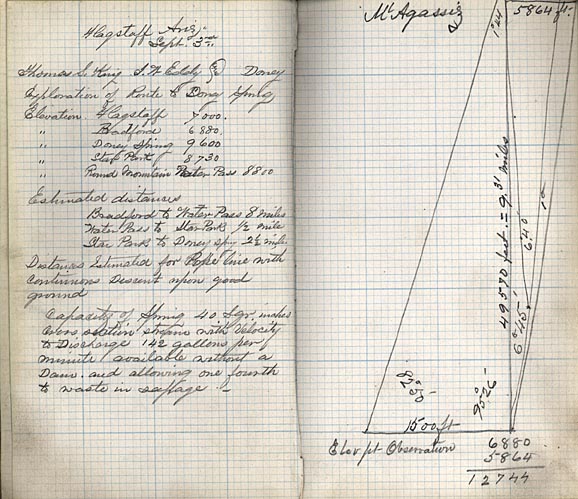 Flagstaff Ariz.
Sept. 3rd
Thomas S. King J. W. Eddy & Doney
Exploration of Route to Doney Spring
Elevation Flagstaff 7000.
" Bradford 6880.
" Doney Spring 9600
" Star Park 8730
" Round Mountain Water Pass 8800
Estimated distances
Bradford to Water Pass 8 miles
Water Pass to Star Park 1/2 mile
Star Park to Doney Spg 2 1/2 miles
Distances Estimated for Pipe line with
Continuous Descent upon good
ground
Capacity of Spring 40 Sqr. inches
Cross section stream with Velocity
to Discharge 142 gallons per
minute available without a
Dam. and allowing one fourth
to waste in seepage. -
Mt Agassiz
1°44
5864 ft.
49580 feet. = 9.31 miles
6°40
6°45'
90°26'
1500 ft
Elev pt Observation 6880
5864
12744